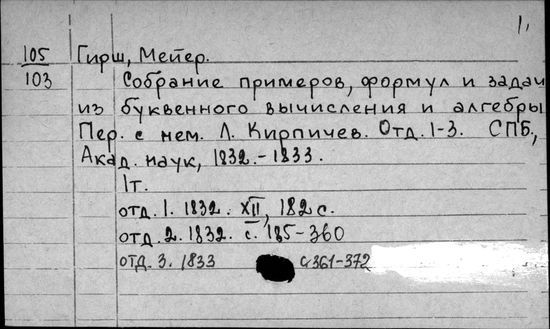 1.
105 Гирш, Мейер.
103 Собрание примеров, формул и задач
из буквенного вычисления и алгебры
Пер. с нем. Л. Кирпичев. Отд. 1-3. СПБ,
Акад. наук, 1832.-1833.
1т.
отд. 1. 1832. XII, 182 с.
отд. 2. 1832. с. 185-360
отд. 3. 1833 с 361-372